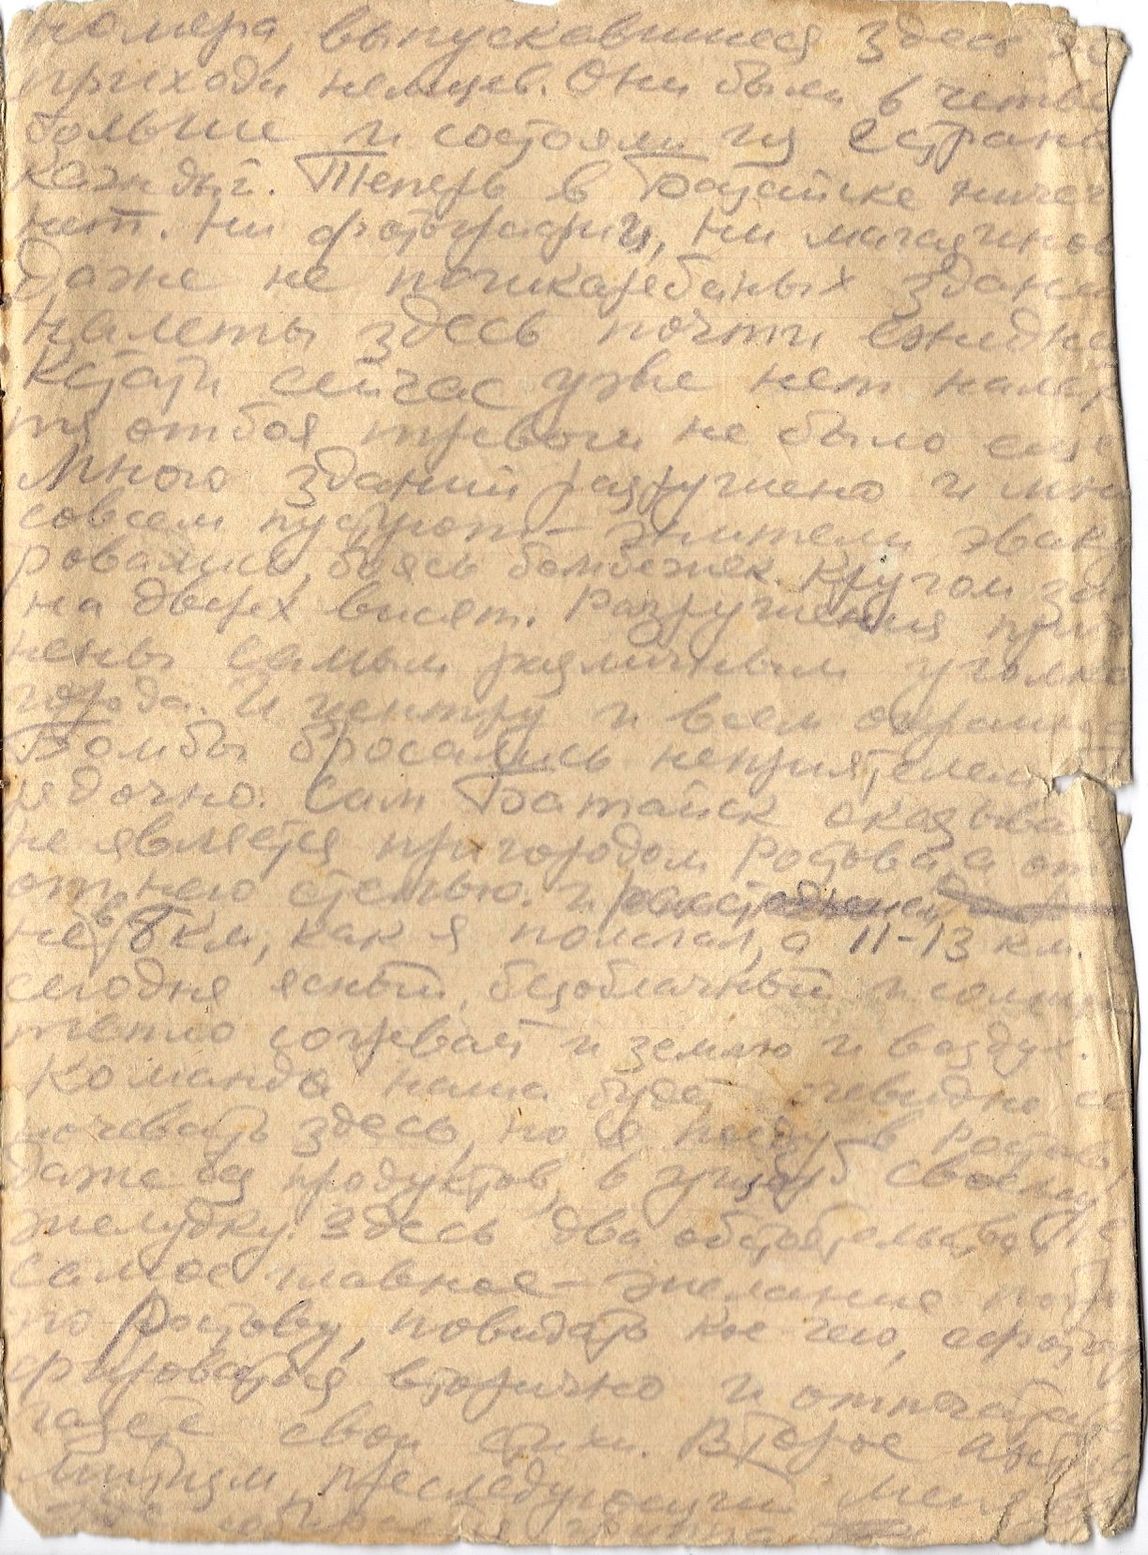 номера, выпускавшиеся здесь до
прихода немцев. Они были в четве
больше и состояли из 2 стран
каждый. Теперь в Батайске ничег
нет. Ни фотографии, ни магазинов
даже не поцикаребаных здани
налеты здесь почти ежедне
Кстати сейчас уже нет налет
но отбоя тревоги не было еще
Много зданий разрушено и мно
совсем пустуют – жители эваку
ровались, боясь бомбежек. Кругом за
на дверях висят. Разрушения при
нены самым различным уголка
города. И центру и всем окраинам
Бомбы бросались неприятелем
рядочно. Сам Батайск оказывае
не является пригородом Ростова, а от
от него степью. И
не в 8 км, как я полагал, а 11-13 км.
сегодня ясный, безоблачный и солны
тепло согревает и землю и воздух.
Команда наша будет очевидно се
ночевать здесь, но я пойду в Ростов
даже без продуктов, в ущерб своему
желудку. Здесь два обстоятельства
самое главное – желание поб
по Ростову, повидать кое чего, сфотог
фироваться вторично и отпечатать
газете свои стихи. Второе – анти
митизм, преследующий меня